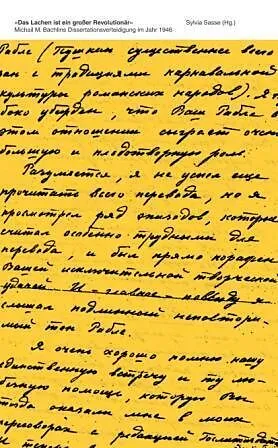 »Das Lachen ist ein großer Revolutionär« Sylvia Sasse (Hg.)
Michail M. Bachtins Dissertationsverteidigung im Jahr 1946
Рабле (Пушкин существеннее всего
с традициями карнавальной
культуры романских народов). Я
боко убежден, что Ваш Рабле
этом отношении сыграет очень
большую и плодотворную роль.
Разумеется, я не успел еще
прочитать всего перевода, но я
просмотрел ряд эпизодов, которые
считал особенно трудными для
перевода, и был прямо поражен
Вашей исключительной творческой
удачей. И – главное –
слышал подлинный неповтори-
мый тон Рабле.
Я очень хорошо помню нашу
единственную встречу и ту
помощь, которую Вы
тогда оказали мне в моих
переговорах с редакцией